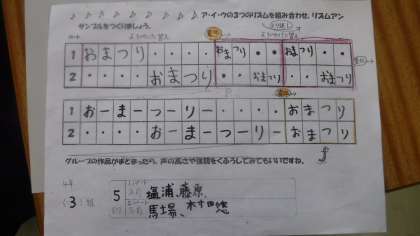 ア・イ・ウの3つのリズムを組み合わせ、リズムアン
サンブルをつくりましょう。
1 おまつり・・・・おまつり・・おまつり
2 ・・・・おまつり・・おまつり・・おまつり
1 おーまーつーり・・・・おまつり
2 ・・・・おーまーつーりーおまつり
グループの作品がまとまったら、声の高さや強弱をくふうしてみてもいいですね。
4年
(3)組
5 塩浦、藤原、
馬場、木村悠